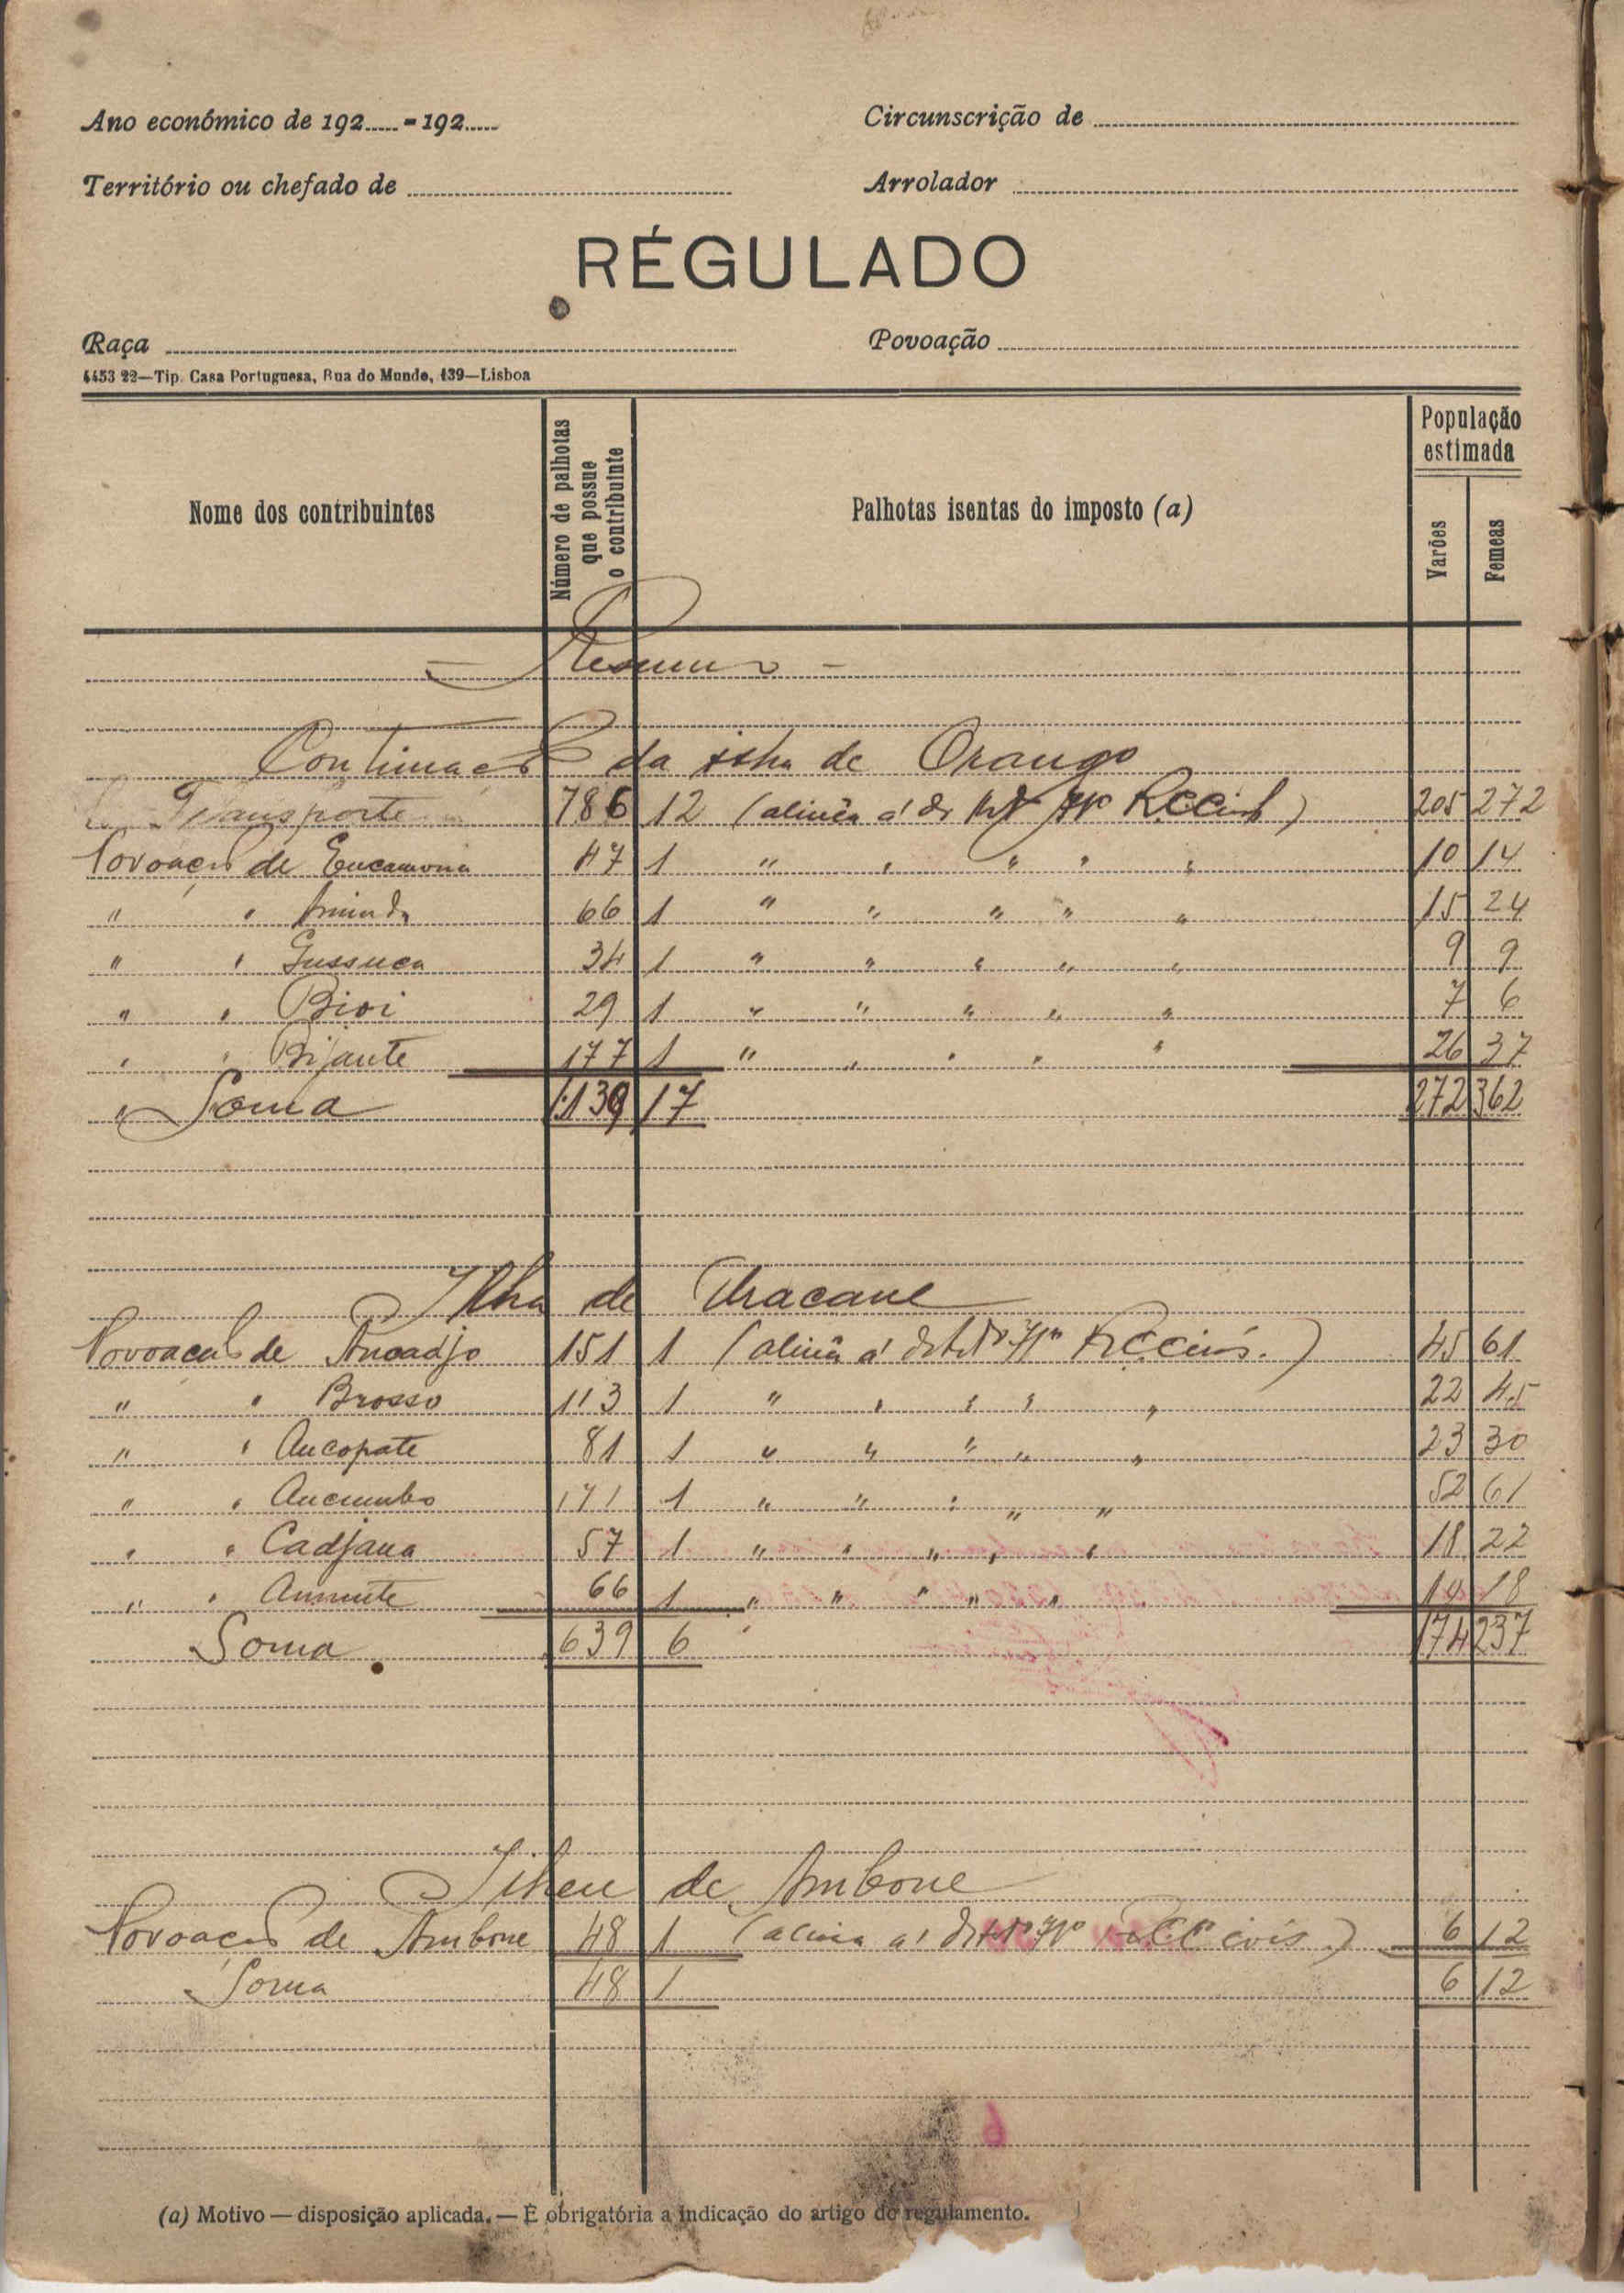 Ano económico de 192.....-192.....
Circunscrição de
Território ou chefado de
Arrolador
RÉGULADO
Raça
Povoação
4453 22—Tip. Casa Portuguesa, Rua do Mundo, 139—Lisboa
Nome dos contribuintes
Número de palhotas que possue o contribuinte
Palhotas isentas do imposto (a)
População estimada
Varões
Femeas
— Resumo —
Continuação da ilha de Orango
Transporte 786 12 (alinea a' do 205 272
Povoação de Eucamona 47 1 " " " " " 10 14
" " 66 1 " " " " " 15 24
" " Gussuca 34 1 " " " " " 9 9
" " Bioi 29 1 " " " " " 7 6
" " Bijante 177 1 " " " " " 26 37
" Soma 1:139 17 272 362
Ilha de Uracane
Povoação de Ancadjo 151 1 (alinea a' 45 61
" " Brosso 113 1 " " " " " 22 45
" " Ancopate 81 1 " " " " " 23 30
" " Ancumbo 171 1 " " " " " 52 61
" " Cadjana 57 1 " " " " " 18 22
" " Anmute 66 1 " " " " " 14 18
Soma 639 6 " 174 237
Ilheu de Ambone
Povoação de Ambone 48 1 (alinea a' 6 12
Soma 48 1 6 12
(a) Motivo — disposição aplicada. — É obrigatória a indicação do artigo do regulamento.